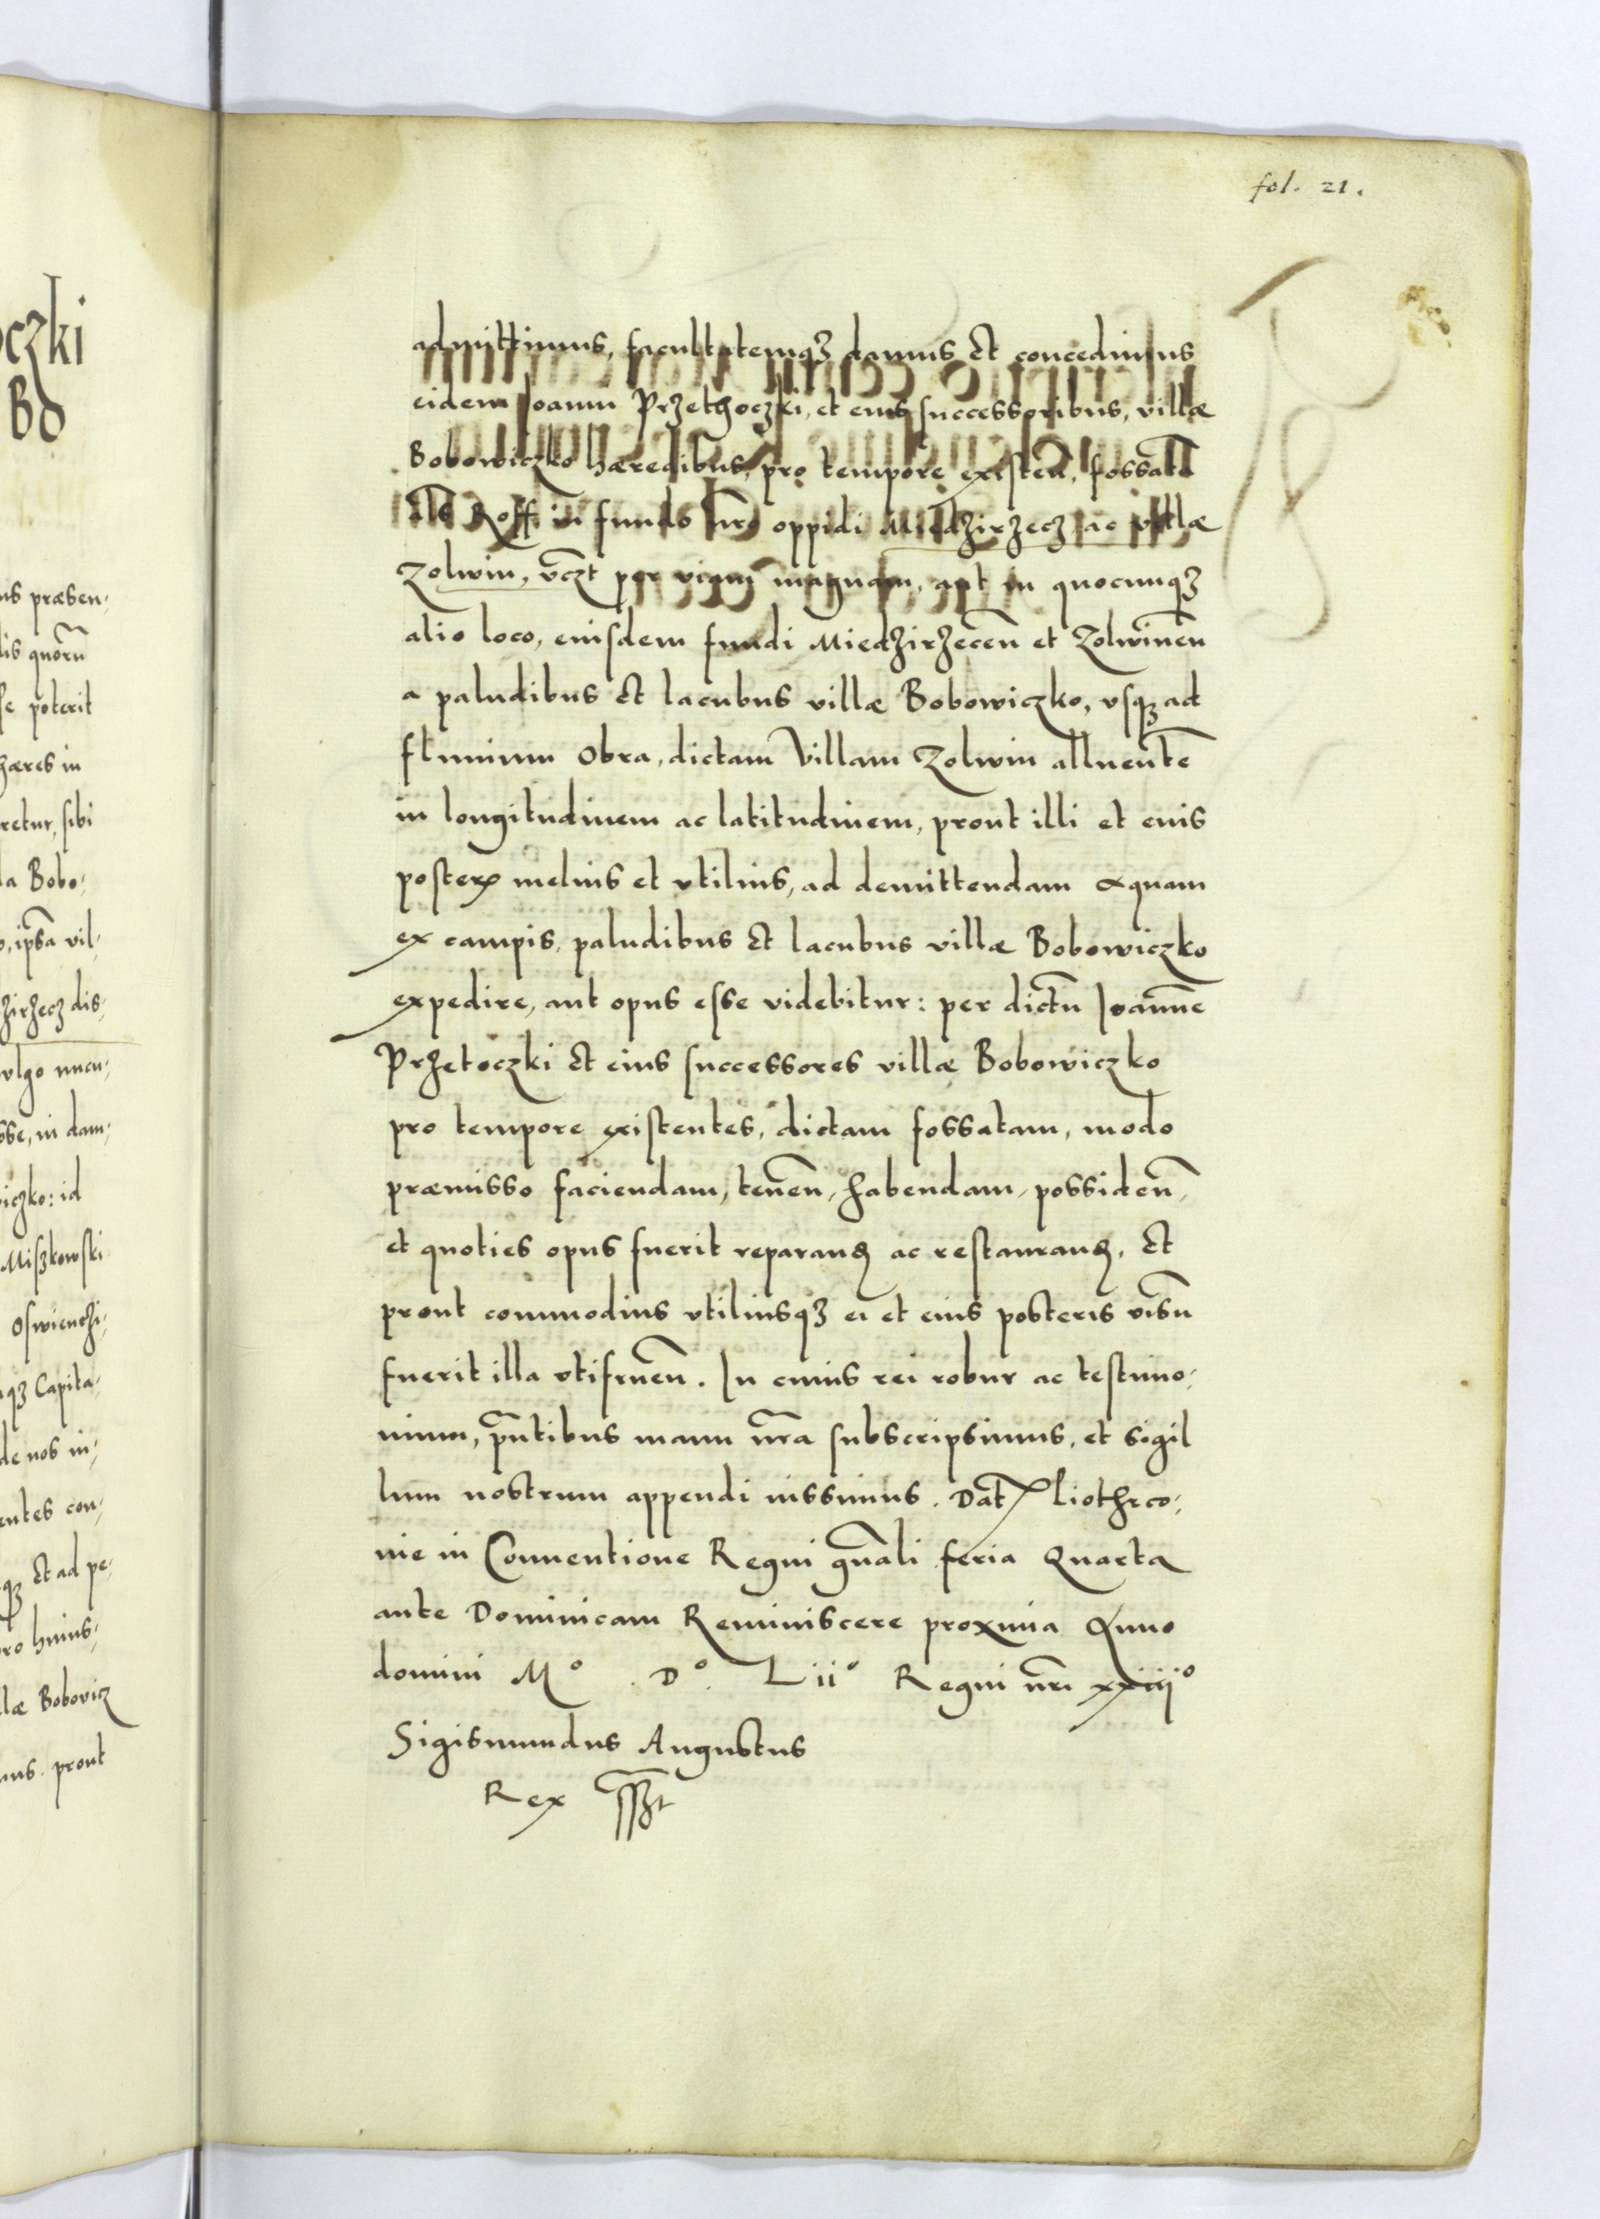 fol. 21.
admittimus, facultatemqꝫ damus et concedimus
eidem Ioanni Przethoczki, et eius successoribus, villæ
Bobowiczko hæredibus, pro tempore existeñ, fossatã
als Roff in fundo nr̃o oppidi Miedzirzecz ac villæ
Zolwin, vcꝫt per viam magnam, aut in quocunqꝫ
alio loco, eiusdem fundi Miedzirzeceñ et Zolwineñ
a paludibus et lacubus villæ Bobowiczko, vsqꝫ ad
fluuium Obra, dictam Villam Zolwin alluentẽ
in longitudinem ac latitudinem, prout illi et eius
posteris melius et vtilius, ad demittendam aquam
ex campis, paludibus et lacubus villæ Bobowiczko
expedire, aut opus esse videbitur: per dictũ Ioannẽ
Przetoczki et eius successores villæ Bobowiczko
pro tempore existentes, dictam fossatam, modo
præmisso faciendam, teneñ, habendam, possideñ,
et quoties opus fuerit reparanđ ac restauranđ, et
prout commodius vtiliusqꝫ ei et eius posteris visũ
fuerit illa vtifrueñ. In cuius rei robur ac testimo-
nium, pñtibus manu nr̃a subscripsimus, et sigil
lum nostrum appendi iussimus. Dat̃ Piothrco-
uie in Conuentione Regni gñali feria Quarta
ante Dominicam Reminiscere proxima Anno
domini Mº. Dº. Liiº Regni nr̃i xxiiiº
Sigismundus Augustus
Rex
oczki
Bo
us præsen-
lis quorũ
se poterit
hæres in
retur, sibi
la Bobo-
o, ipsã vil-
zirzecz dis-
vulgo nucu-
sse, in dam-
iczko: id
Miszkowski
Oswienczi-
qꝫ Capita-
de nos in-
entes con-
qꝫ et ad pe-
pro huius-
llæ Bobovicz
mus. prout